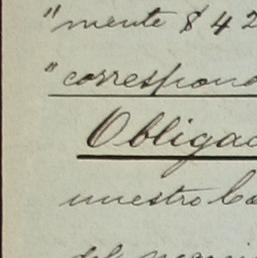 "mente $42
"correspond
Obligac
nuestro Co
del